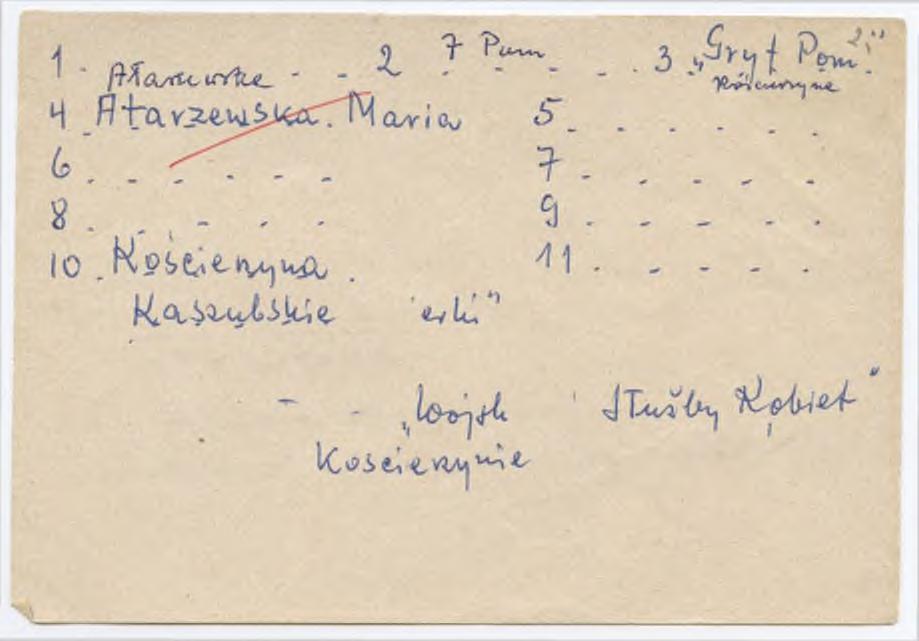 1. 2 7 Pom 3 „Gryf Pom."
Kościerzyna
4 Atarzewska. Maria 5
6 7
8 9
10. Kościerzyna. 11.
Kaszubskie
„Wojsk Służby Kobiet"
Kościerzynie